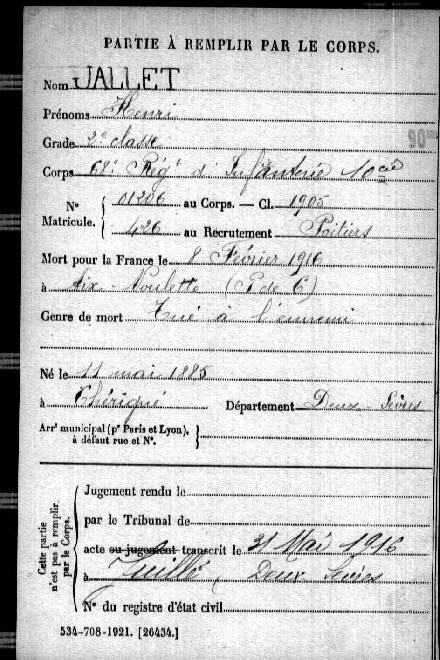 PARTIE À REMPLIR PAR LE CORPS.
Nom JALLET
Prénoms Henri
Grade 2e classe
Corps 68e Régt d'Infanterie 10e Cie
N° Matricule. { 01206 au Corps. — Cl. 1905
426 au Recrutement Poitiers
Mort pour la France le 8 Février 1916
à Aix-Noulette (P de C)
Genre de mort Tué à l'ennemi
Né le 11 mai 1885
à Chérigné Département Deux-Sèvres
Arrt municipal (pr Paris et Lyon), à défaut rue et N°. }
Cette partie n'est pas à remplir par le Corps.
Jugement rendu le
par le Tribunal de
acte ou jugement transcrit le 31 Mai 1916
à Juillé (Deux Sèvres
N° du registre d'état civil
534-708-1921. [26434.]